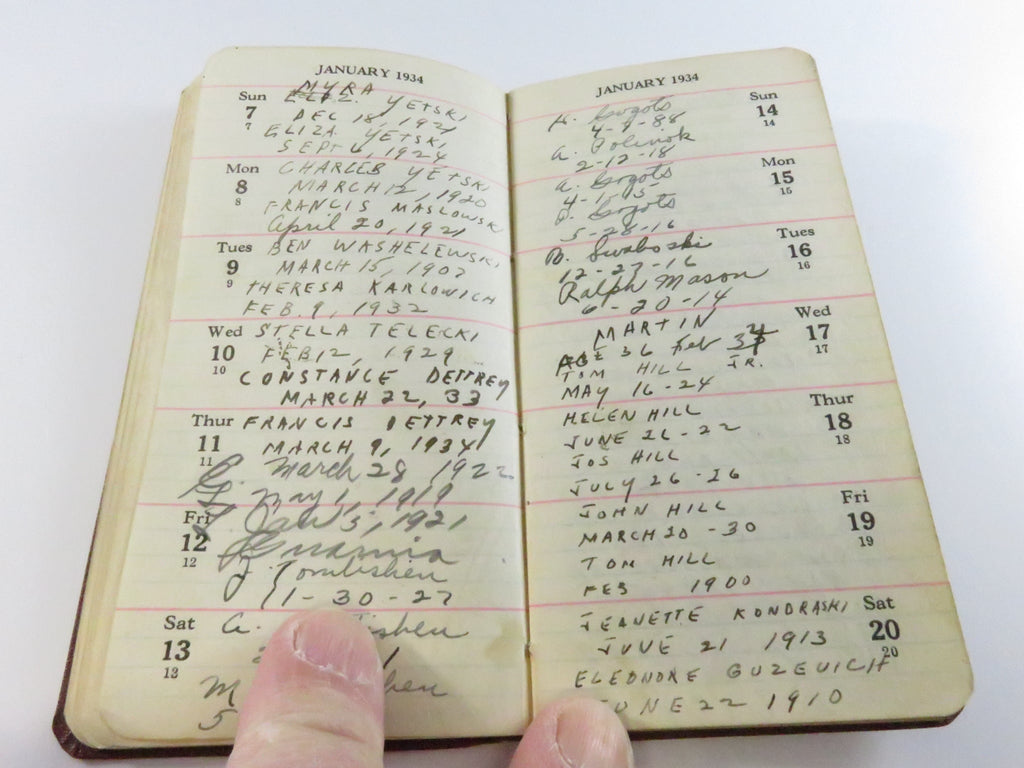 JANUARY 1934
Sun
7
7
MYRA
YETSKI
DEC 18, 1921
ELIZA YETSKI
SEPT 6, 1924
Mon
8
8
CHARLES YETSKI
MARCH 12, 1920
FRANCIS MASLOWSKI
April 20, 1921
Tues
9
9
BEN WASHELEWSKI
MARCH 15, 1907
THERESA KARLOWICH
FEB. 9, 1932
Wed
10
10
STELLA TELECKI
FEB 12, 1929
CONSTANCE DETTREY
MARCH 22, 33
Thur
11
11
FRANCIS DETTREY
MARCH 9, 1934
March 28 1922
May 1, 1919
Fri
12
12
Jan 3, 1921
J. Tombishen
11-30-27
Sat
13
13
a.
M
5
JANUARY 1934
Sun
14
14
Gogots
4-9-88
a. Polinok
2-12-18
Mon
15
15
a. Gogots
4-1-15
Gogots
5-28-16
Tues
16
16
B. Swaboski
12-27-16
Ralph Mason
6-20-14
Wed
17
17
MARTIN
AGE 36 Feb
TOM HILL JR.
MAY 16-24
Thur
18
18
HELEN HILL
JUNE 26-22
JOS HILL
JULY 26-26
Fri
19
19
JOHN HILL
MARCH 20-30
TOM HILL
FEB 1900
Sat
20
20
JEANETTE KONDRASKI
JUNE 21 1913
ELEONORE GUZEVICH
JUNE 22 1910